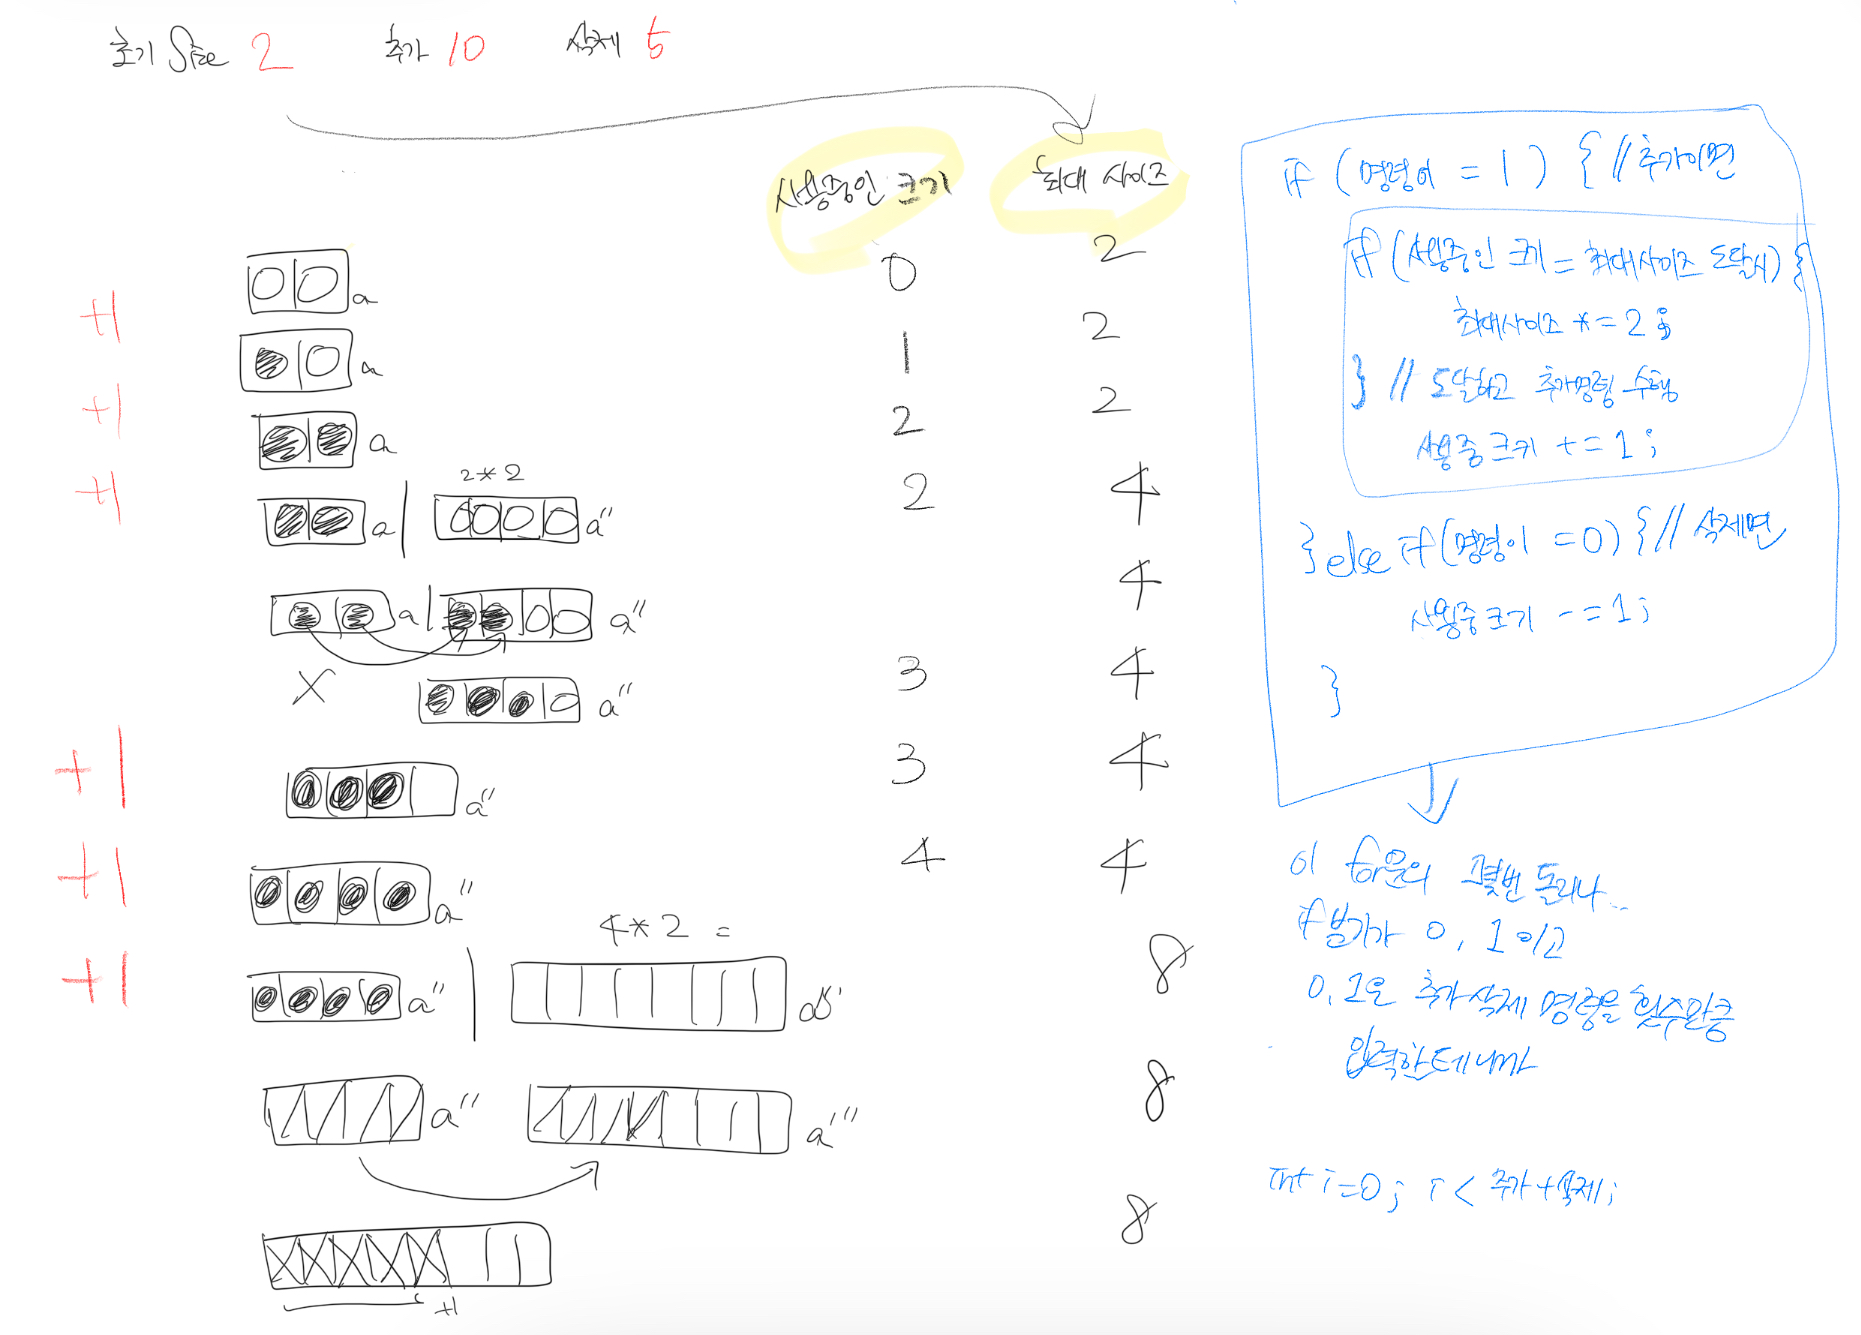 초기 Size 2 추가 10 삭제 5
사용중인 크기 최대 사이즈
a 0 2
+1 a 1 2
+1 a 2 2
2*2
+1 a a'' 2 4
a a'' 4
X a'' 3 4
+1 a'' 3 4
+1 a'' 4 4
4*2=
+1 a'' 8
a'' a''' 8
8
+1
if (명령어 = 1) { //추가이면
if (사용중인 크기 = 최대사이즈 도달시) {
최대사이즈 *= 2;
} // 도달하고 추가명령 수행
사용중크기 += 1;
} else if (명령어 = 0) { // 삭제면
사용중크기 -= 1;
}
이 for문의 몇번 돌리나..
if 분기가 0, 1 이고
0, 1은 추가 삭제 명령을 횟수만큼
입력할테니까
int i=0; i < 추가+삭제;